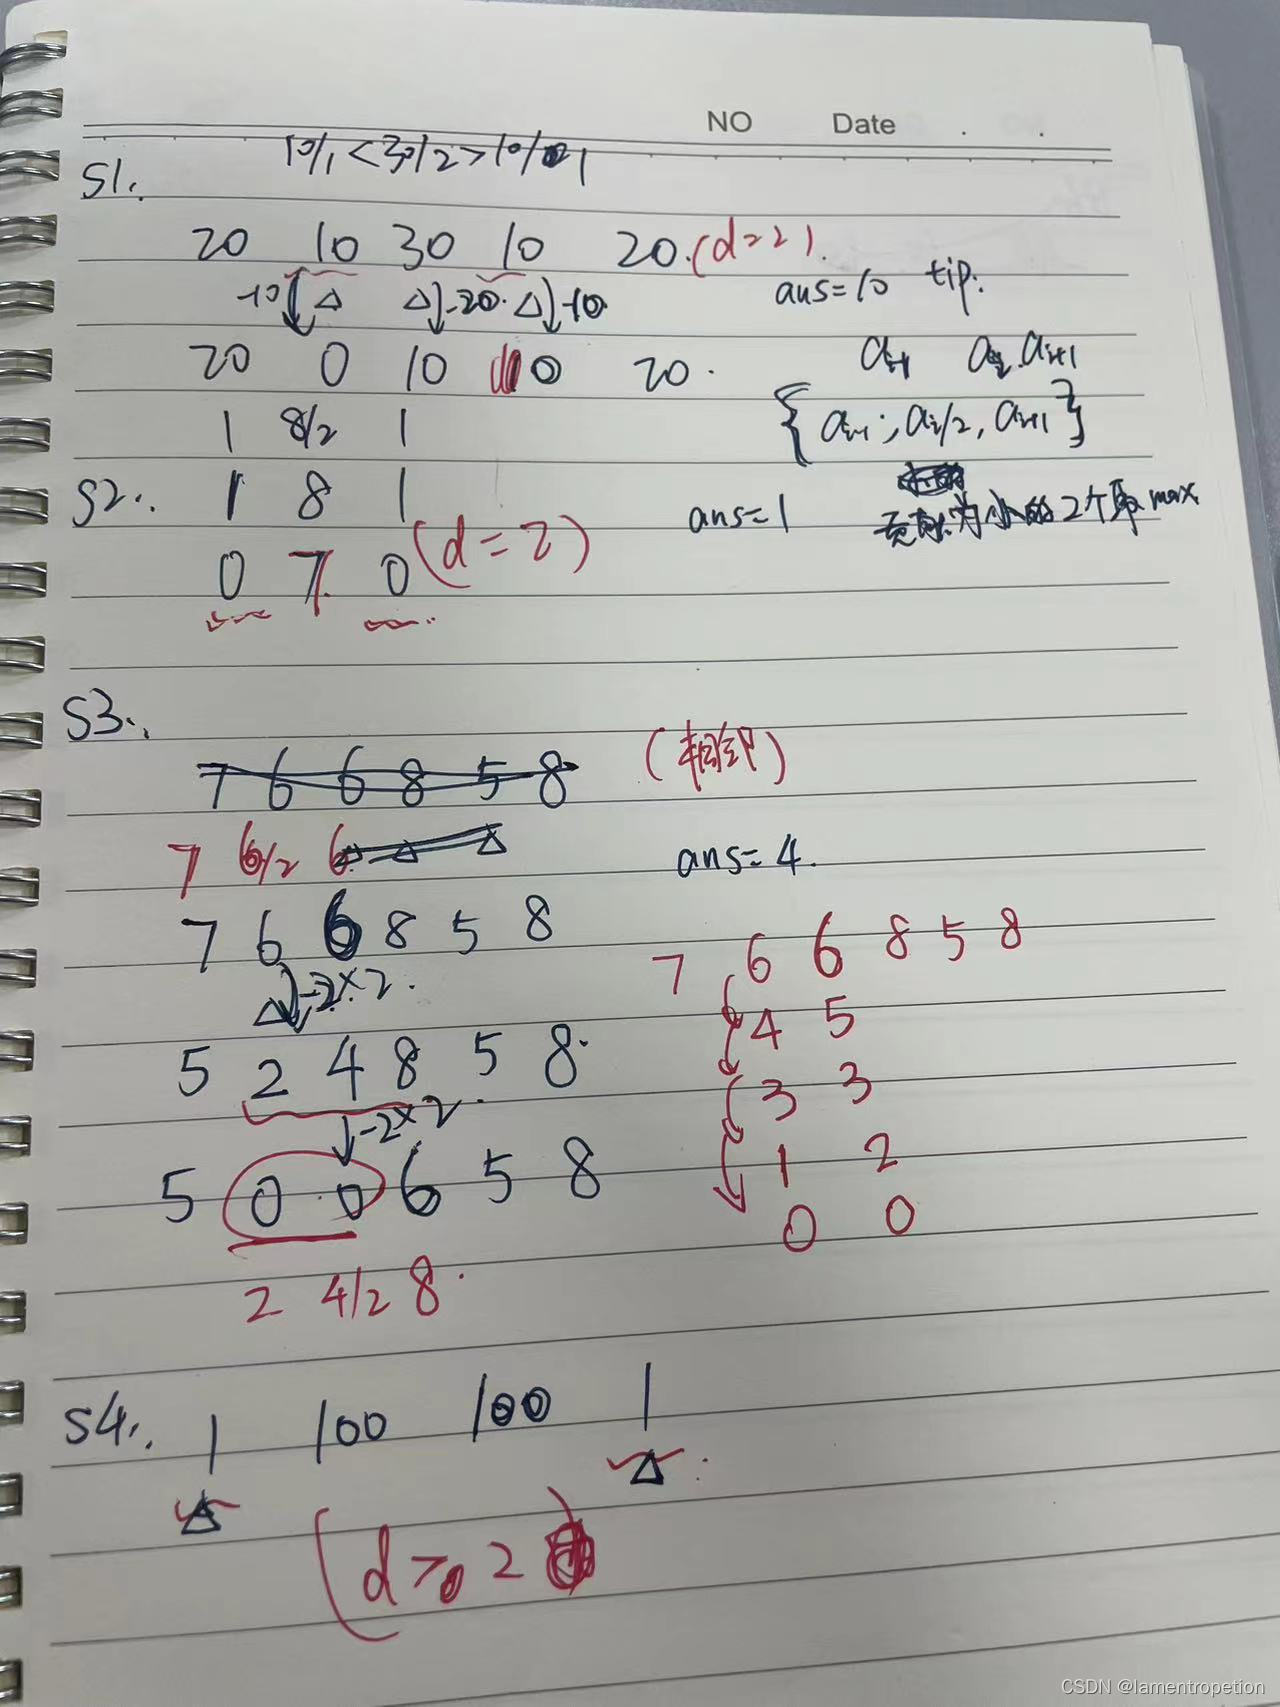 NO Date . .
10/1 < 30/2 > 10/1
S1.
20 10 30 10 20. (d=2).
-10 △ △ -20. △ -10
ans=10 tip:
20 0 10 0 20.
a_{i-1} a_i a_{i+1}
1 8/2 1
{a_{i-1}, a_i/2, a_{i+1}}
S2. 1 8 1
ans=1
为小的2个取max
0 7 0 (d=2)
S3.
7 6 6 8 5 8 (相邻)
7 6/2 6
ans=4.
7 6 6 8 5 8
7 6 6 8 5 8
△ -2×2.
4 5
5 2 4 8 5 8.
3 3
-2×2.
1 2
5 0 0 6 5 8
0 0
2 4/2 8.
S4. 1 100 100 1
△ △
(d>2)
CSDN @lamentropetion